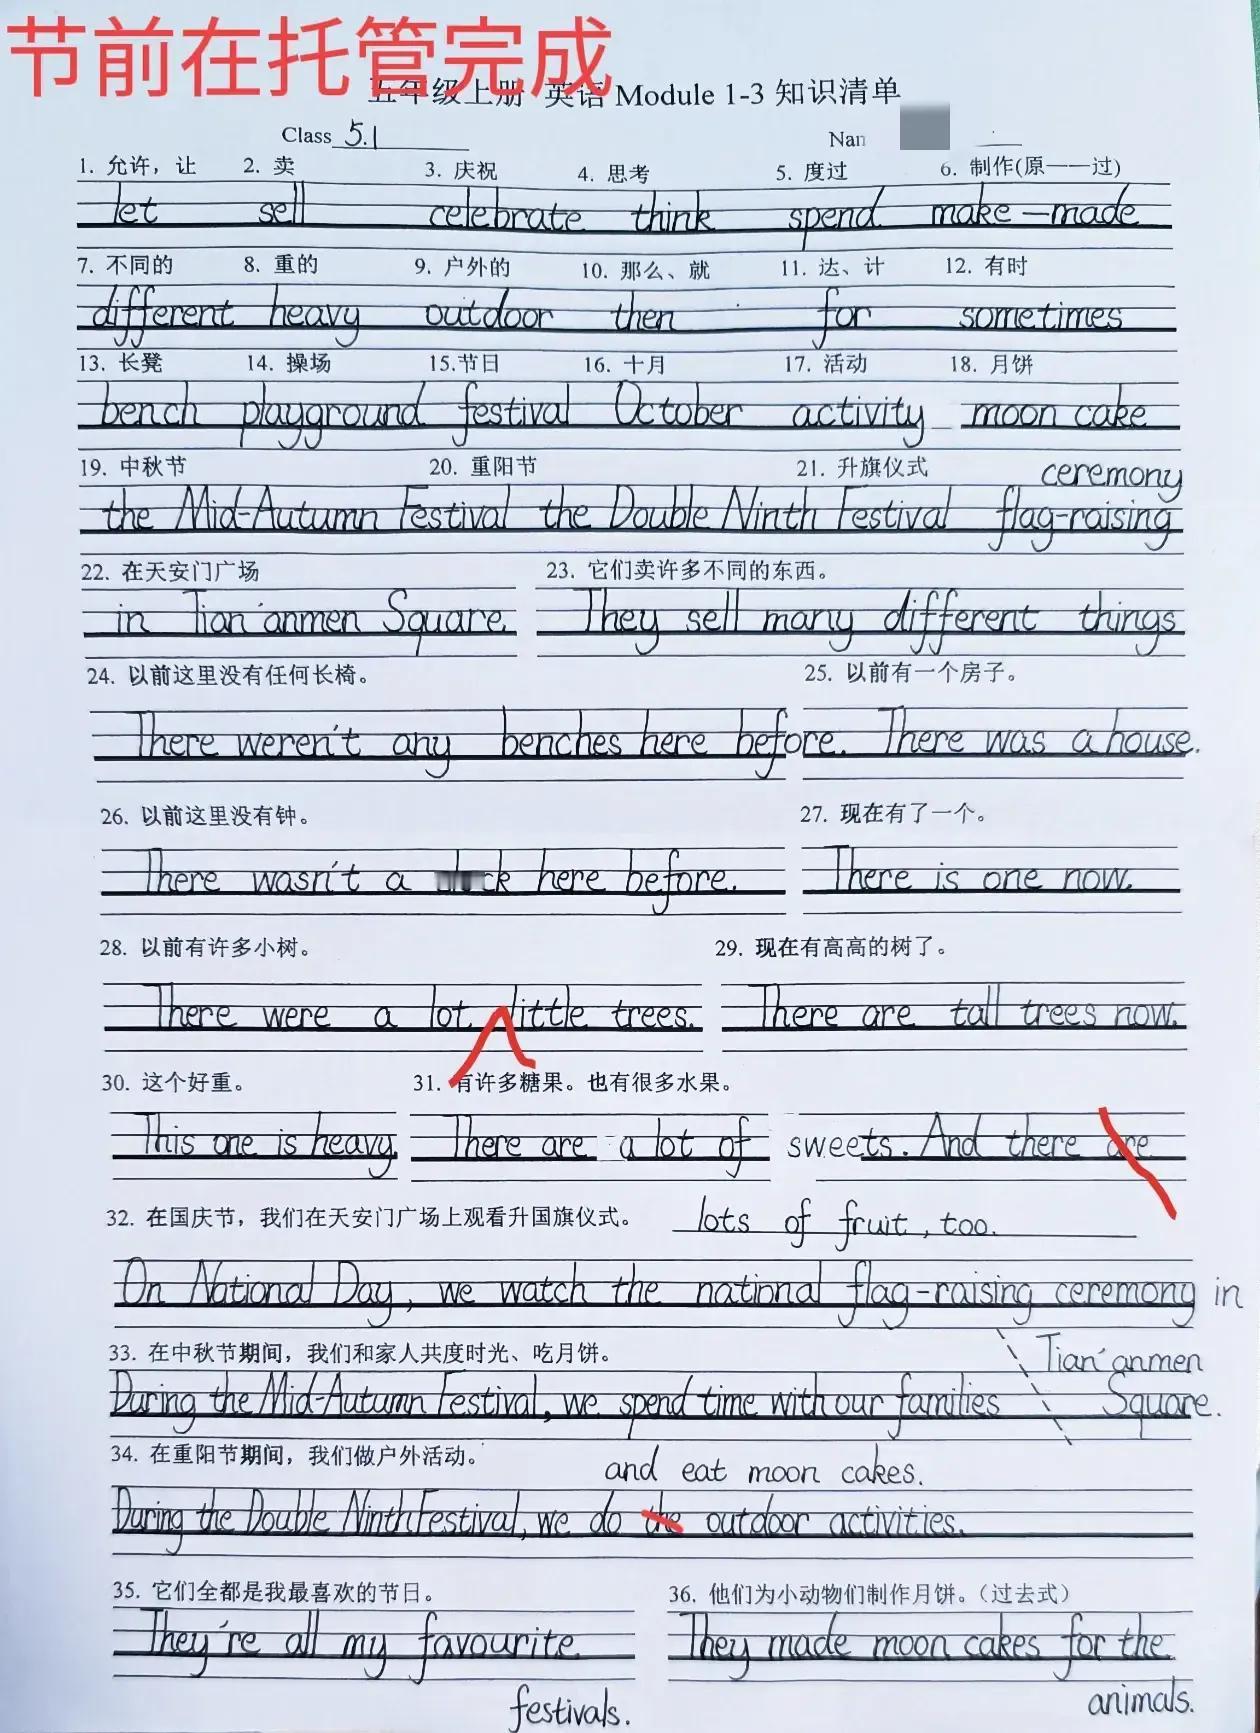 节前在托管完成
五年级上册 英语 Module 1-3 知识清单
Class 5.1 Nan
1. 允许，让 2. 卖 3. 庆祝 4. 思考 5. 度过 6. 制作(原——过)
let sell celebrate think spend make—made
7. 不同的 8. 重的 9. 户外的 10. 那么、就 11. 达、计 12. 有时
different heavy outdoor then for sometimes
13. 长凳 14. 操场 15.节日 16. 十月 17. 活动 18. 月饼
bench playground festival October activity moon cake
19. 中秋节 20. 重阳节 21. 升旗仪式 ceremony
the Mid-Autumn Festival the Double Ninth Festival flag-raising
22. 在天安门广场 23. 它们卖许多不同的东西。
in Tian'anmen Square. They sell many different things
24. 以前这里没有任何长椅。 25. 以前有一个房子。
There weren't any benches here before. There was a house.
26. 以前这里没有钟。 27. 现在有了一个。
There wasn't a here before. There is one now.
28. 以前有许多小树。 29. 现在有高高的树了。
There were a lot little trees. There are tall trees now.
30. 这个好重。 31. 有许多糖果。也有很多水果。
This one is heavy. There are a lot of sweets. And there are
32. 在国庆节，我们在天安门广场上观看升国旗仪式。 lots of fruit, too.
On National Day, we watch the national flag-raising ceremony in
33. 在中秋节期间，我们和家人共度时光、吃月饼。 Tian'anmen
During the Mid-Autumn Festival, we spend time with our families Square.
34. 在重阳节期间，我们做户外活动。 and eat moon cakes.
During the Double Ninth Festival, we do the outdoor activities.
35. 它们全都是我最喜欢的节日。 36. 他们为小动物们制作月饼。（过去式）
They're all my favourite They made moon cakes for the
festivals. animals.